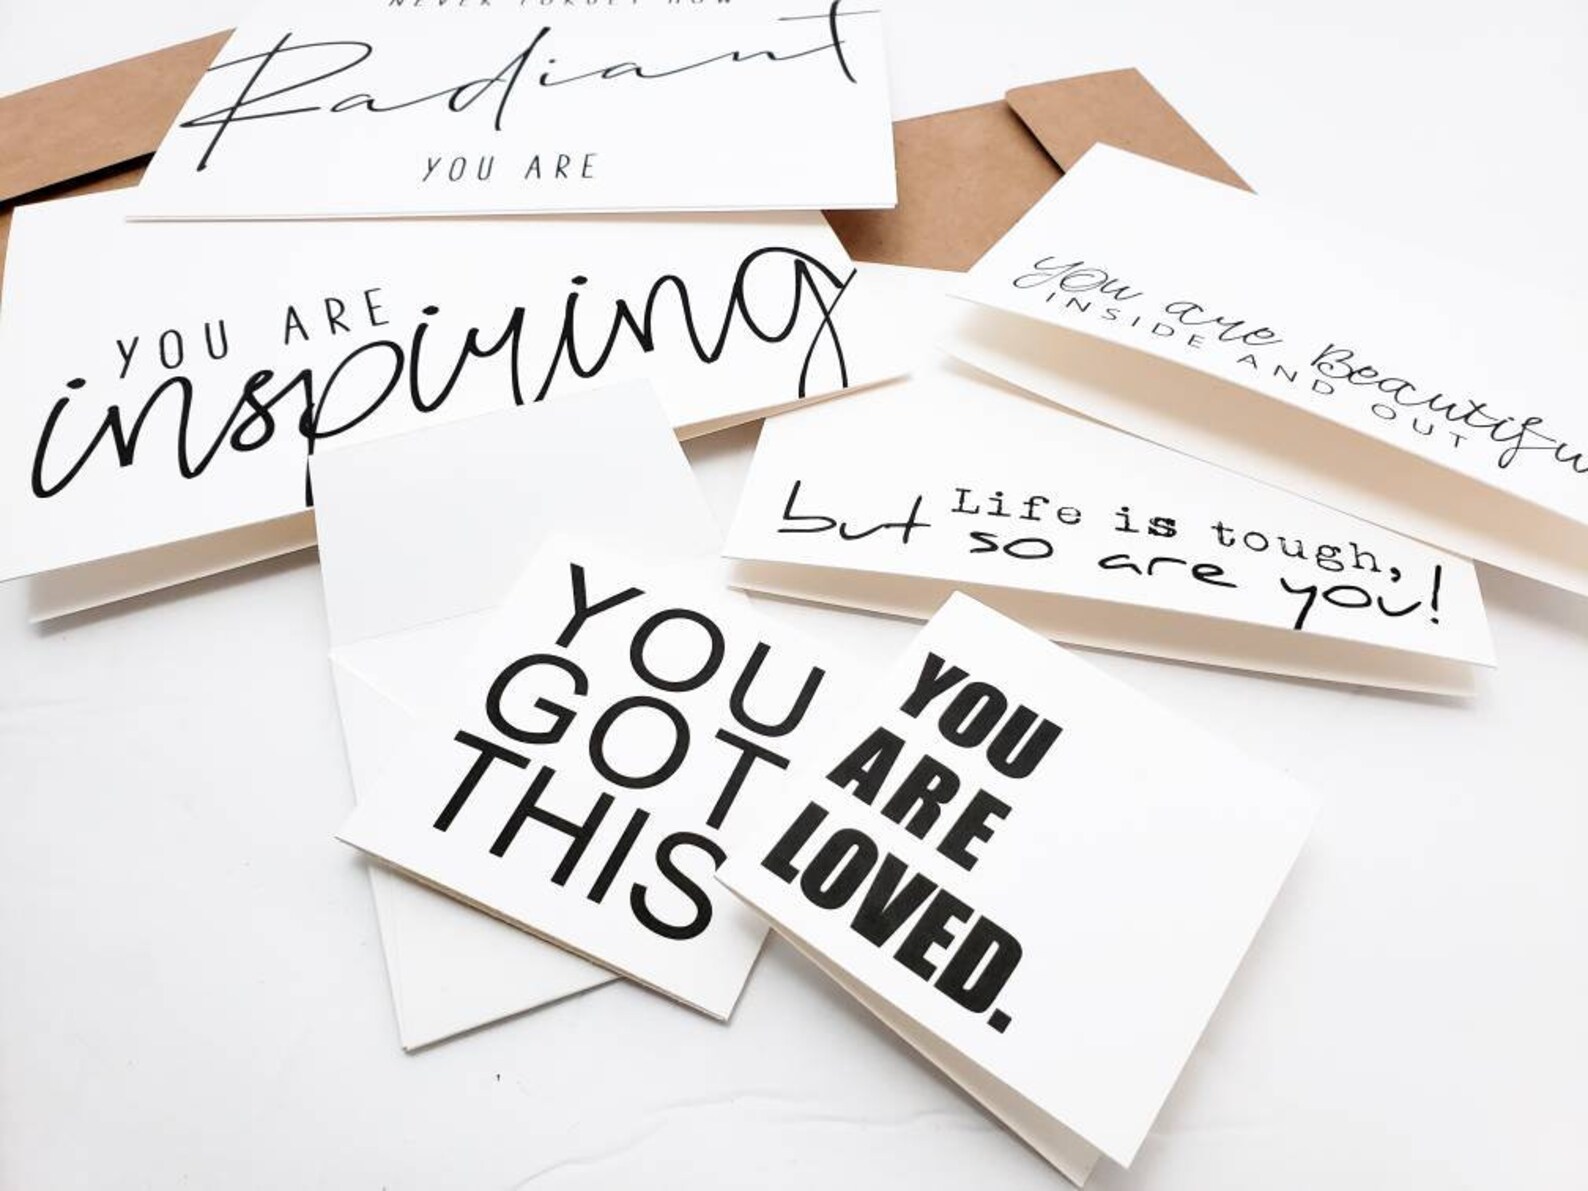 NEVER FORGET HOW
Radiant
YOU ARE
YOU ARE
inspiring
you are Beautifu
INSIDE AND OUT
Life is tough,
but so are you!
YOU
GOT
THIS
YOU
ARE
LOVED.